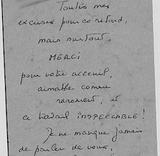 Toutes mes
excuses pour ce retard,
mais surtout,
MERCI
pour votre accueil,
aimable comme
rarement, et
ce travail IMPECCABLE!
Je ne manque jamais
de parler de vous,